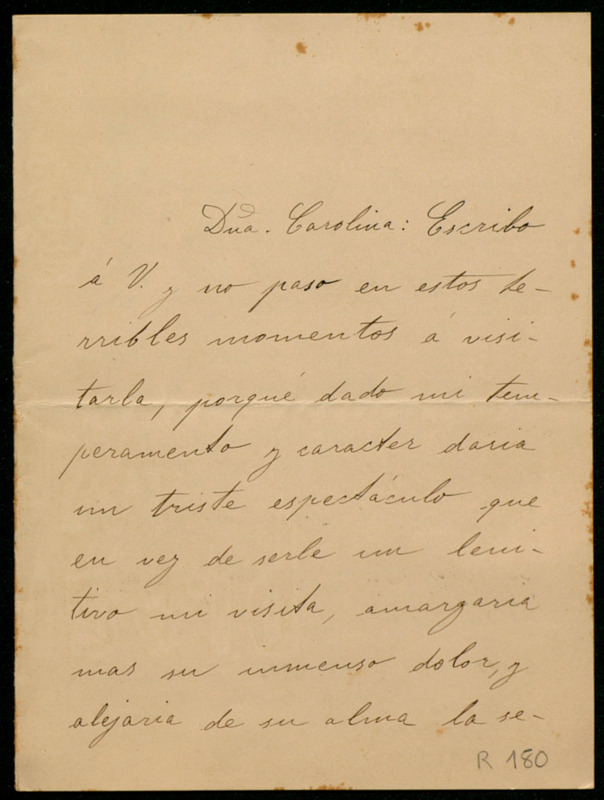 Dña. Carolina: Escribo
á V. y no paso en estos te-
rribles momentos á visi-
tarla, porqué dado mi tem-
peramento y caracter daria
un triste espectáculo que
en vez de serle un leni-
tivo mi visita, amargaria
mas su inmenso dolor, y
alejaria de su alma la se-
R 180